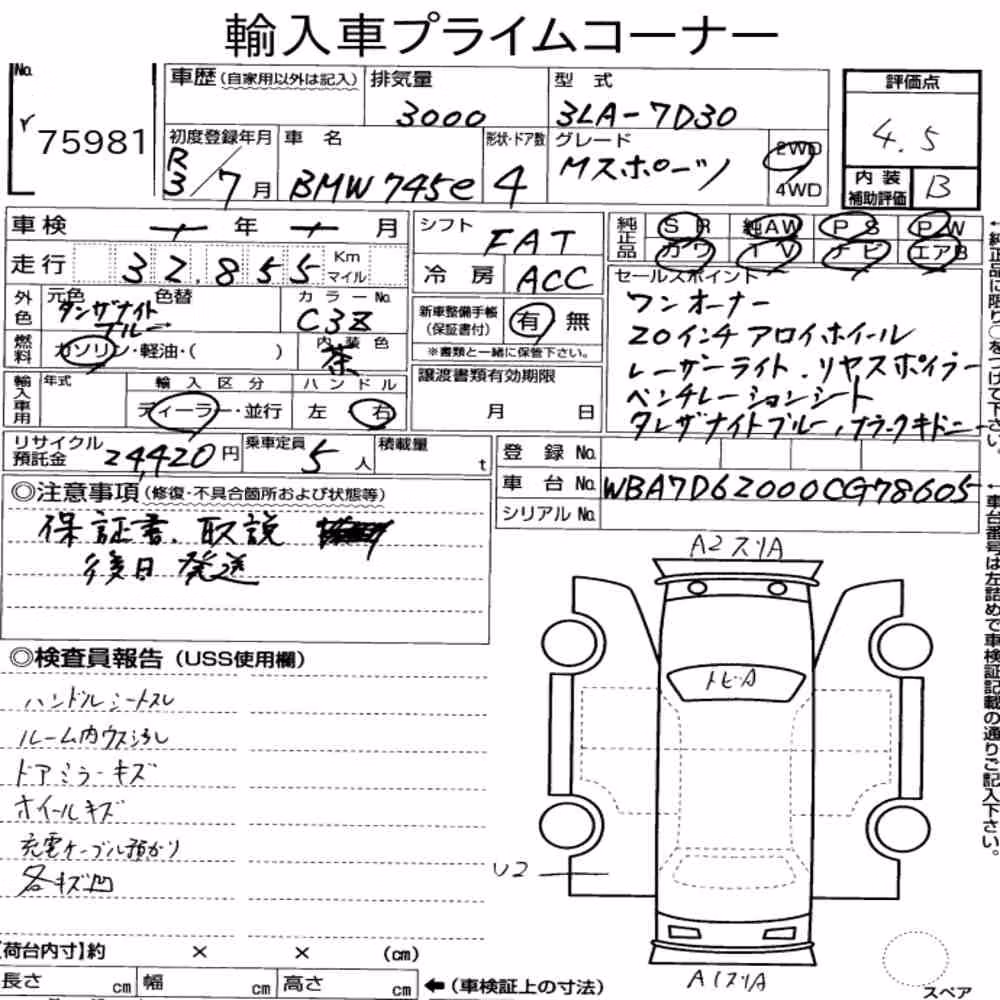 輸入車プライムコーナー
No.
r
75981
車歴(自家用以外は記入)
排気量
3000
型 式
3LA-7D30
評価点
4.5
初度登録年月
R3/7月
車 名
BMW 745e
形状・ドア数
4
グレード
Mスポーツ
2WD
4WD
内 装
補助評価
B
車検 年 月
シフト
FAT
純正品
S R 純AW P S P W
カワ T V ナビ エアB
走行
32,855
Km
マイル
冷 房
ACC
セールスポイント
ワンオーナー
20インチアロイホイール
レーザーライト.リヤスポイラー
ベンチレーションシート
タンザナイトブルー,ブラックキドニー
外色
元色 色替
タンザナイト
ブルー
カラーNo.
C3Z
新車整備手帳
(保証書付)
有 無
※書類と一緒に保管下さい。
燃料
ガソリン・軽油・( )
内 装 色
茶
輸入車用
年式
輸 入 区 分
ディーラー・並行
ハ ン ド ル
左 ・ 右
譲渡書類有効期限
月 日
リサイクル
預託金
24,420円
乗車定員
5人
積載量
t
登 録 No.
車 台 No.
WBA7D62000CG78605
シリアルNo.
◎注意事項(修復・不具合箇所および状態等)
保証書、取説
後日 発送
◎検査員報告(USS使用欄)
ハンドルシートスレ
ルーム内ウス汚れ
ドアミラーキズ
ホイールキズ
充電ケーブル預かり
各キズ凹
A2スリA
トビA
U2
A1スリA
スペア
【荷台内寸】約 × × (cm)
長さ cm 幅 cm 高さ cm
←(車検証上の寸法)
←純正品に限り○をつけて下さい。
←車台番号は左詰めで車検証記載の通りご記入下さい。